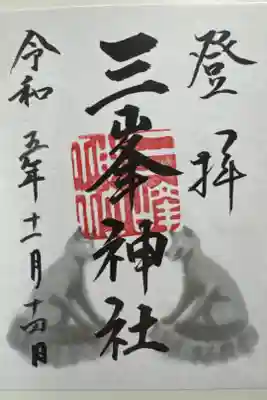 登拝
三峯神社
令和五年十一月十四日